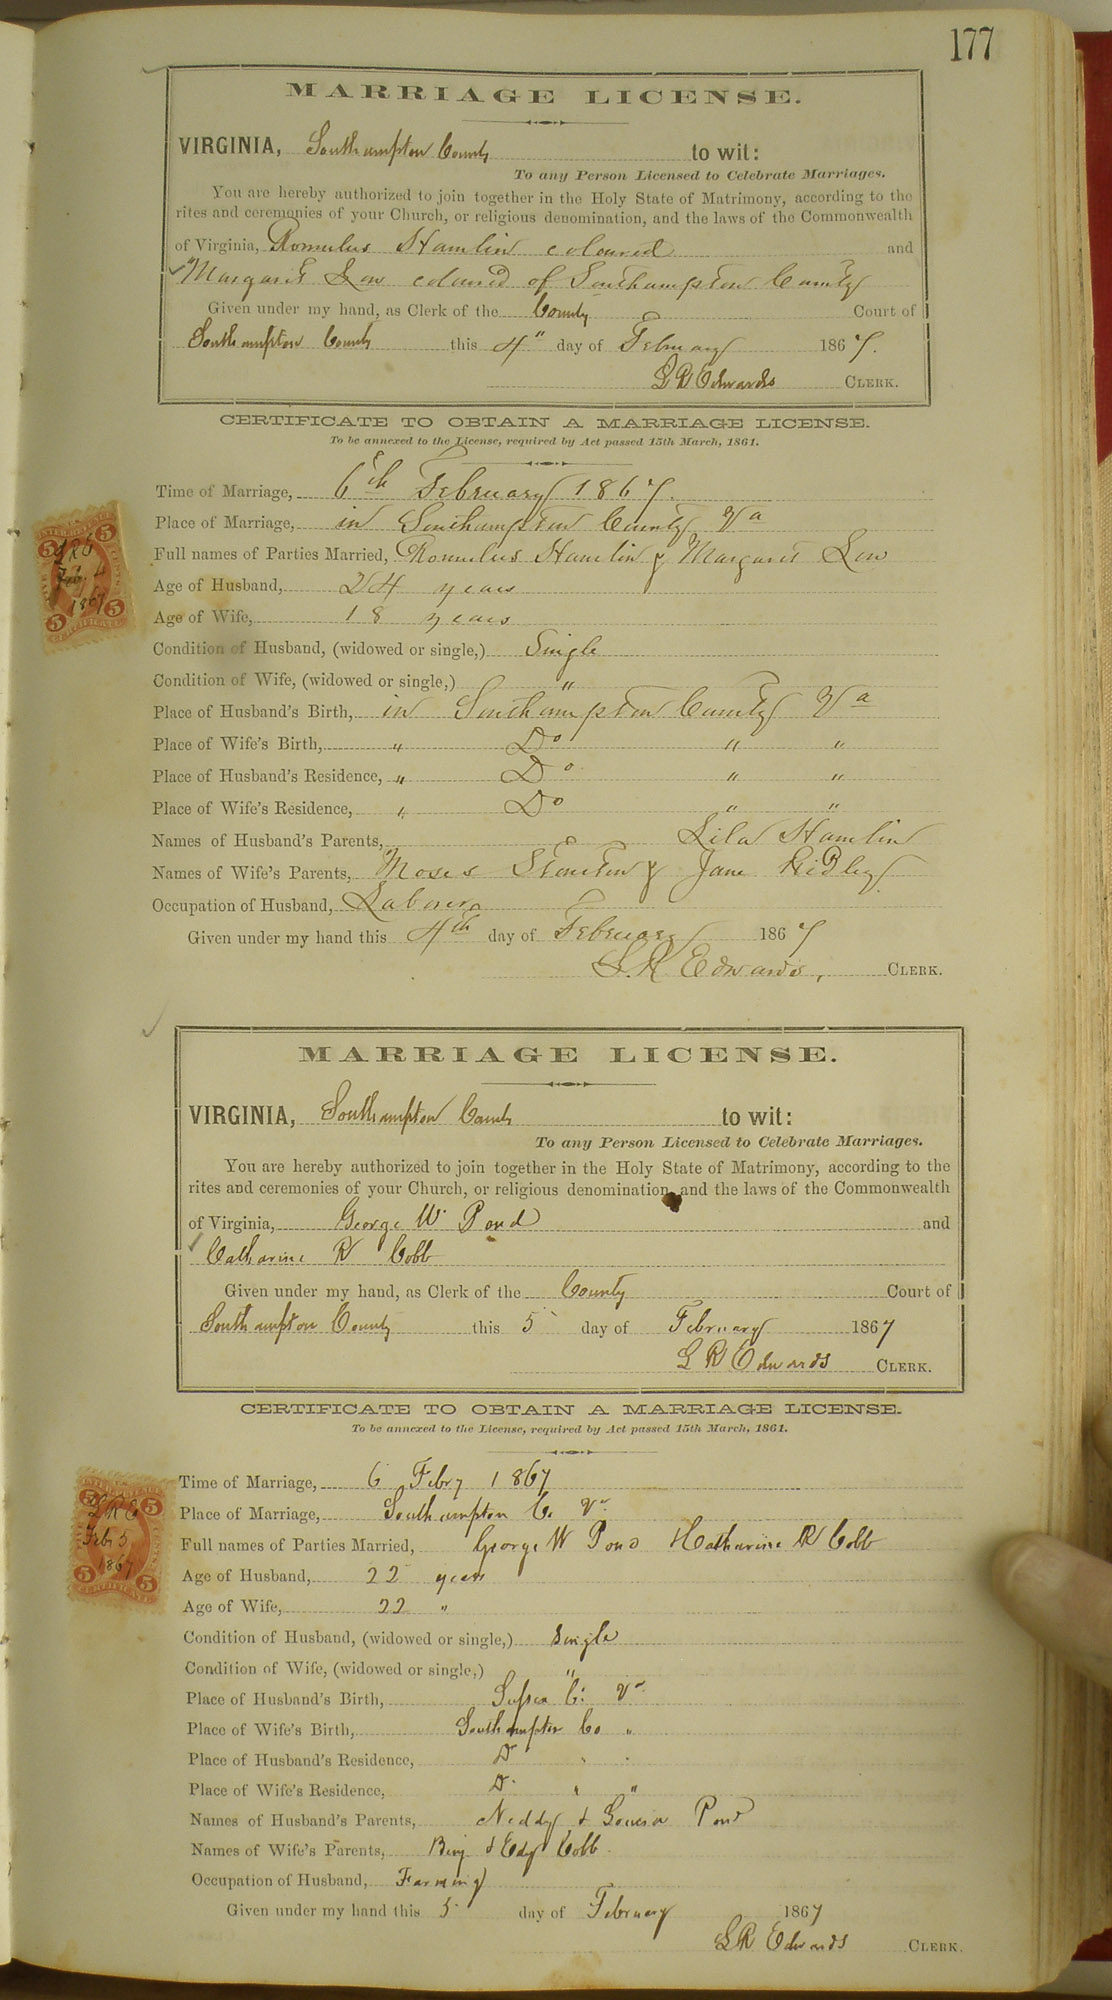 177
MARRIAGE LICENSE.
VIRGINIA, Southampton County to wit:
To any Person Licensed to Celebrate Marriages.
You are hereby authorized to join together in the Holy State of Matrimony, according to the
rites and ceremonies of your Church, or religious denomination, and the laws of the Commonwealth
of Virginia, Romulus Hamlin coloured and
Margaret Low coloured of Southampton County
Given under my hand, as Clerk of the County Court of
Southampton County this 4" day of February 1867.
L R Edwards CLERK.
CERTIFICATE TO OBTAIN A MARRIAGE LICENSE.
To be annexed to the License, required by Act passed 15th March, 1861.
Time of Marriage, 6th February 1867.
Place of Marriage, in Southampton County Va
Full names of Parties Married, Romulus Hamlin & Margaret Low
Age of Husband, 24 years
Age of Wife, 18 years
Condition of Husband, (widowed or single,) Single
Condition of Wife, (widowed or single,) "
Place of Husband's Birth, in Southampton County Va
Place of Wife's Birth, " Do " "
Place of Husband's Residence, " Do " "
Place of Wife's Residence, " Do " "
Names of Husband's Parents, Lila Hamlin
Names of Wife's Parents, Moses & Jane Ridley
Occupation of Husband, Laborer
Given under my hand this 4th day of February 1867
L. R Edwards, CLERK.
5 5
LRE
Feb. 4
1867
5 5
MARRIAGE LICENSE.
VIRGINIA, Southampton County to wit:
To any Person Licensed to Celebrate Marriages.
You are hereby authorized to join together in the Holy State of Matrimony, according to the
rites and ceremonies of your Church, or religious denomination, and the laws of the Commonwealth
of Virginia, George W. Pond and
Catharine R Cobb
Given under my hand, as Clerk of the County Court of
Southampton County this 5 day of February 1867
L R Edwards CLERK.
CERTIFICATE TO OBTAIN A MARRIAGE LICENSE.
To be annexed to the License, required by Act passed 15th March, 1861.
Time of Marriage, 6 Feby 1867
Place of Marriage, Southampton Co Va
Full names of Parties Married, George W Pond & Catharine R Cobb
Age of Husband, 22 years
Age of Wife, 22 "
Condition of Husband, (widowed or single,) Single
Condition of Wife, (widowed or single,) "
Place of Husband's Birth, Sussex Co Va
Place of Wife's Birth, Southampton Co "
Place of Husband's Residence, Do " "
Place of Wife's Residence, Do " "
Names of Husband's Parents, Neddy & Pond
Names of Wife's Parents, Benj & Edy Cobb
Occupation of Husband, Farming
Given under my hand this 5 day of February 1867
L R Edwards CLERK.
5 5
LRE
Feb 5
1867
5 5